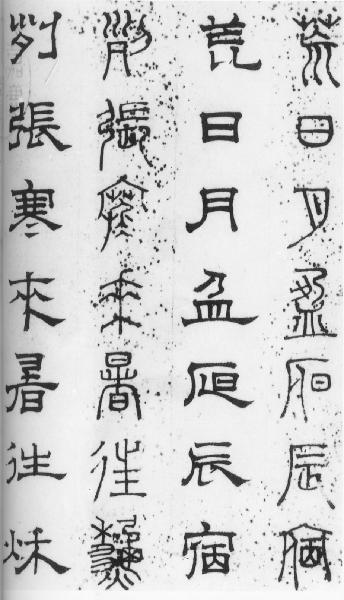 荒日月盈昃辰宿
荒日月盈昃辰宿
列張寒來暑往秋
列張寒來暑往秋